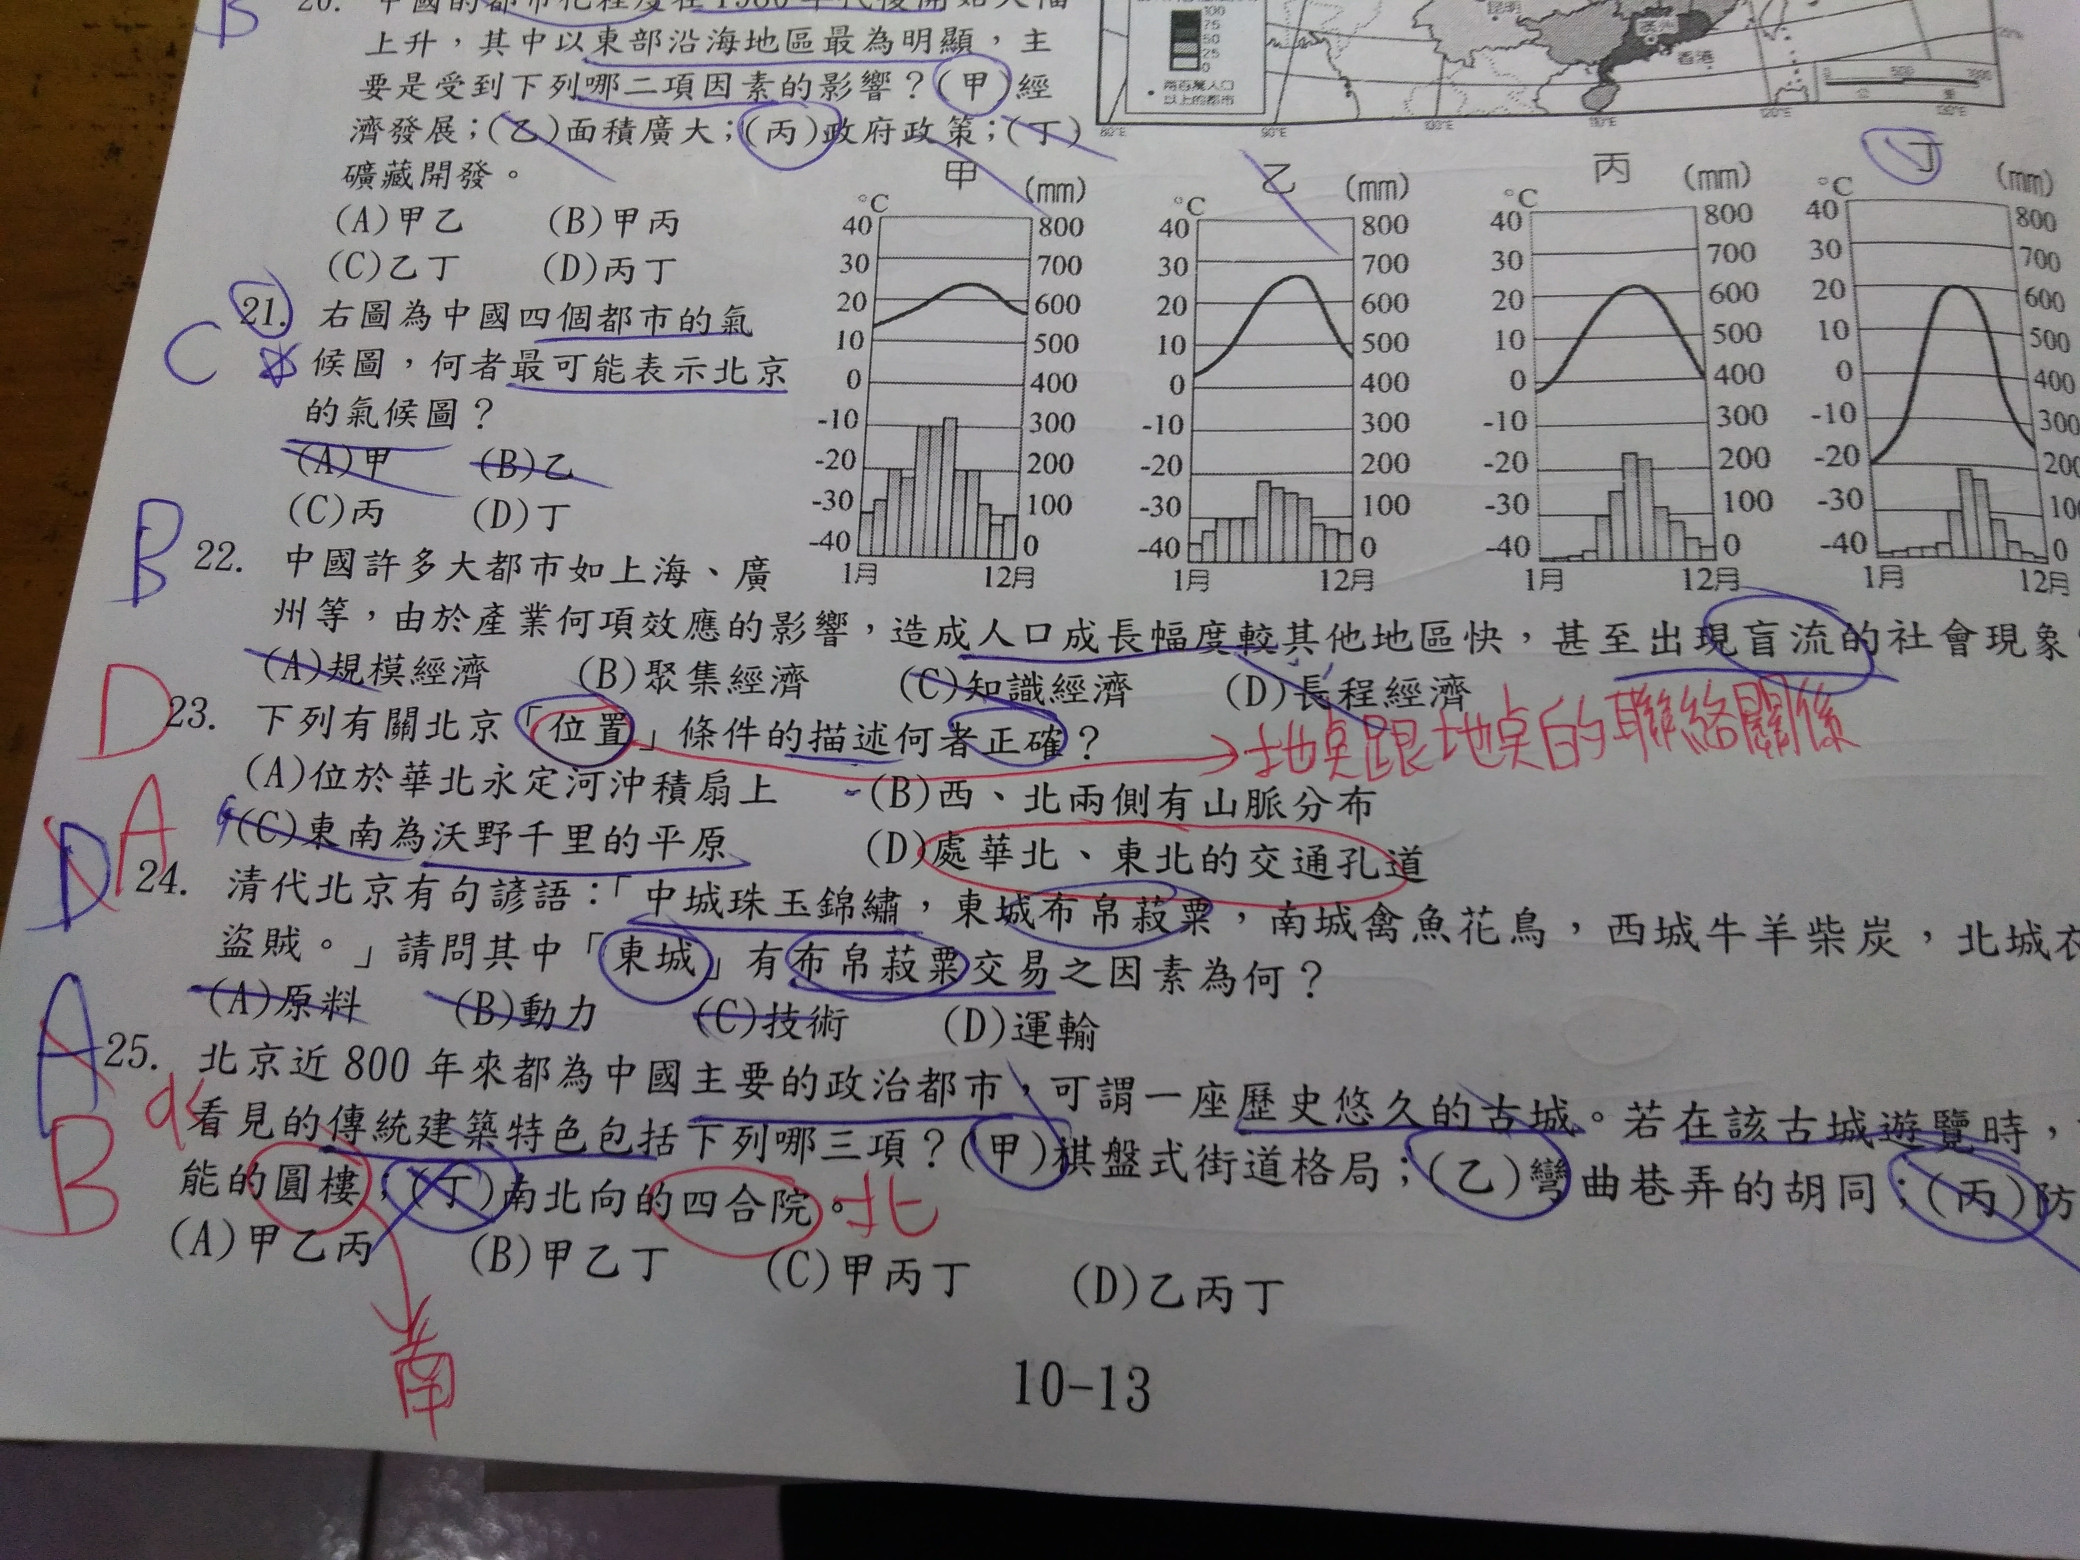 B
20. 中國的都市化程度在1980年代後開始大幅
上升，其中以東部沿海地區最為明顯，主
要是受到下列哪二項因素的影響？(甲)經
濟發展；(乙)面積廣大；(丙)政府政策；(丁)
礦藏開發。
(A)甲乙 (B)甲丙
(C)乙丁 (D)丙丁
100
75
50
25
0
兩百萬人口
以上的都市
昆明
香港
0 500 1000
80°E 90°E 100°E 110°E 120°E 130°E
C
21. 右圖為中國四個都市的氣
候圖，何者最可能表示北京
的氣候圖？
(A)甲 (B)乙
(C)丙 (D)丁
甲
°C (mm)
40 800
30 700
20 600
10 500
0 400
-10 300
-20 200
-30 100
-40 0
1月 12月
乙
°C (mm)
40 800
30 700
20 600
10 500
0 400
-10 300
-20 200
-30 100
-40 0
1月 12月
丙
°C (mm)
40 800
30 700
20 600
10 500
0 400
-10 300
-20 200
-30 100
-40 0
1月 12月
丁
°C (mm)
40 800
30 700
20 600
10 500
0 400
-10 300
-20 200
-30 100
-40 0
1月 12月
B
22. 中國許多大都市如上海、廣
州等，由於產業何項效應的影響，造成人口成長幅度較其他地區快，甚至出現盲流的社會現象
(A)規模經濟 (B)聚集經濟 (C)知識經濟 (D)長程經濟
D
23. 下列有關北京「位置」條件的描述何者正確？
地點跟地點的聯絡關係
(A)位於華北永定河沖積扇上 (B)西、北兩側有山脈分布
(C)東南為沃野千里的平原 (D)處華北、東北的交通孔道
D A
24. 清代北京有句諺語：「中城珠玉錦繡，東城布帛菽粟，南城禽魚花鳥，西城牛羊柴炭，北城衣
盜賊。」請問其中「東城」有布帛菽粟交易之因素為何？
(A)原料 (B)動力 (C)技術 (D)運輸
A
B
25. 北京近800年來都為中國主要的政治都市，可謂一座歷史悠久的古城。若在該古城遊覽時，
看見的傳統建築特色包括下列哪三項？(甲)棋盤式街道格局；(乙)彎曲巷弄的胡同；(丙)防
能的圓樓；(丁)南北向的四合院。北
(A)甲乙丙 (B)甲乙丁 (C)甲丙丁 (D)乙丙丁
南
10-13